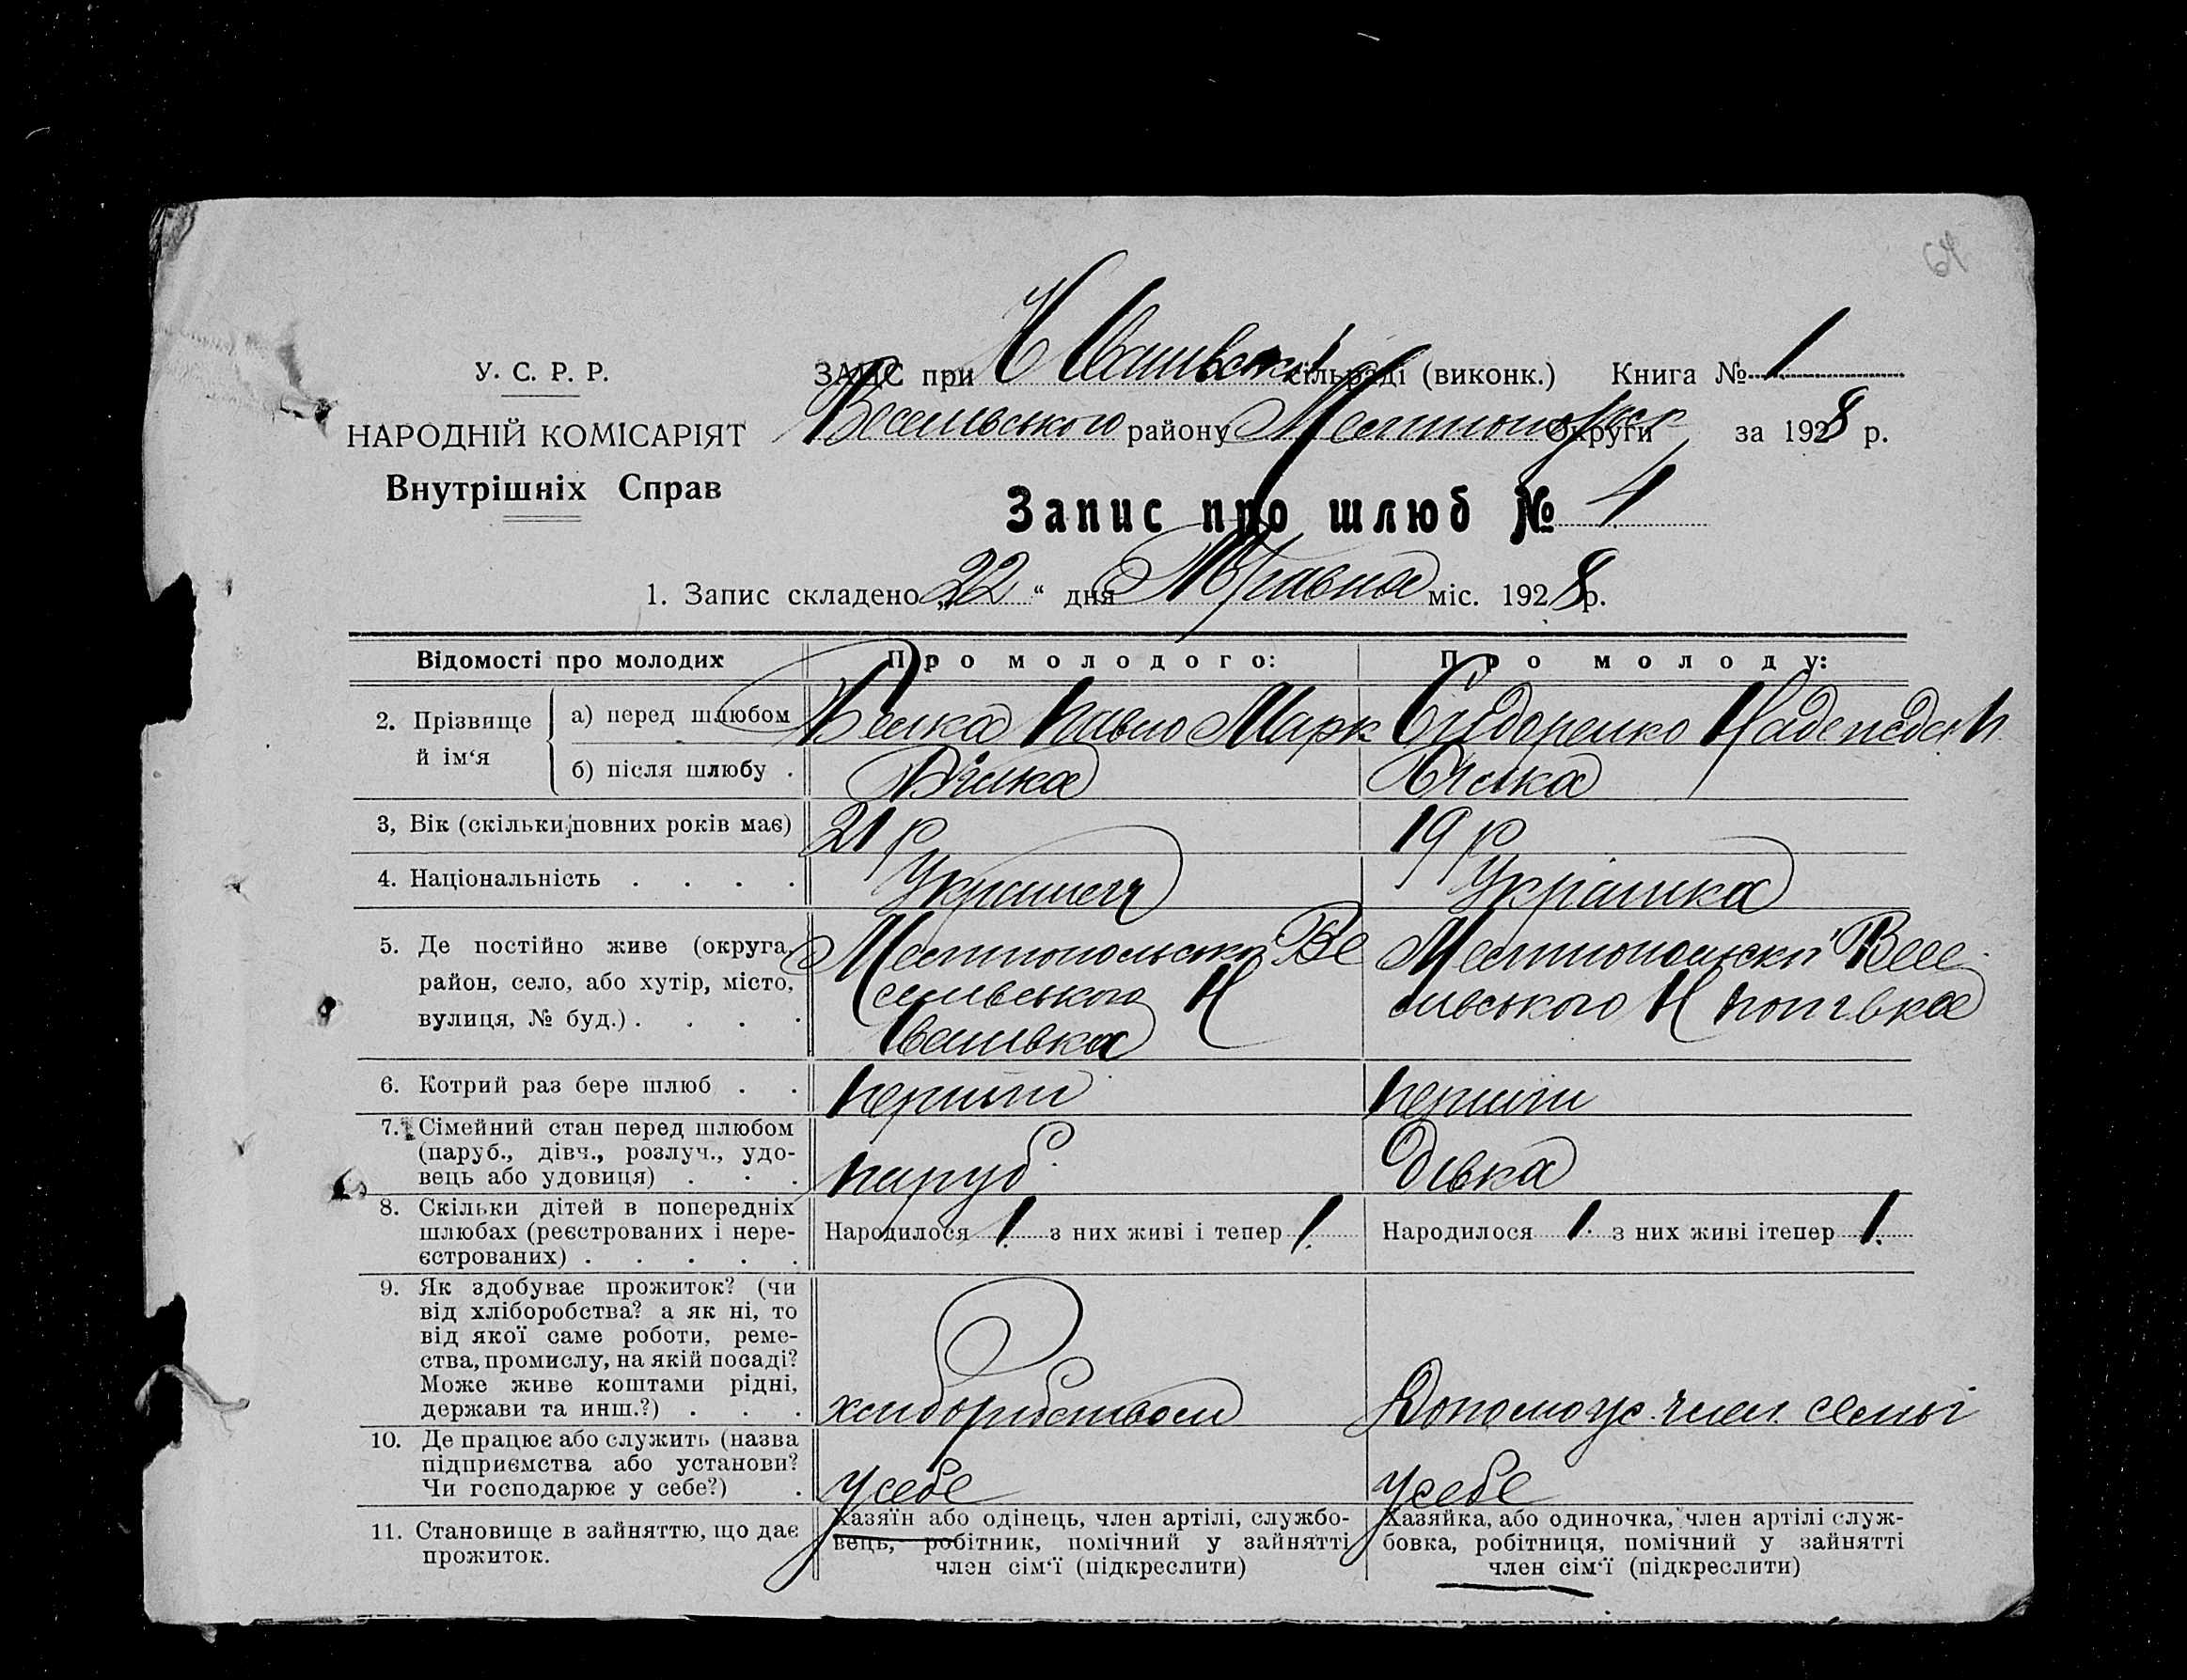 64
У. С. Р. Р.
НАРОДНІЙ КОМІСАРІЯТ
Внутрішніх Справ
ЗАГС при Н Іванівські сільраді (виконк.) Книга № 1
Веселівського району Мелітопольск округи за 1928 р.
Запис про шлюб № 4
1. Запис складено „22“ дня Травня міс. 1928 р.
Відомості про молодих
Про молодого:
Про молоду:
2. Прізвище й ім‘я
а) перед шлюбом
Білка Павло Марк
Сидоренко Надежда П
б) після шлюбу .
Білка
Білка
3, Вік (скільки повних років має)
21 р
19 р
4. Національність . . . .
Українець
Українка
5. Де постійно живе (округа,
район, село, або хутір, місто,
вулиця, № буд.) . . . .
Мелітопольської Ве
селівського Н
Іванівка
Мелітопольскі Весе
лівського Н
6. Котрий раз бере шлюб . .
перший
перший
7. Сімейний стан перед шлюбом
(паруб., дівч., розлуч., удо-
вець або удовиця) . . .
паруб
Дівка
8. Скільки дітей в попередніх
шлюбах (реєстрованих і нере-
єстрованих) . . . . .
Народилося / з них живі і тепер /
Народилося / з них живі ітепер /
9. Як здобуває прожиток? (чи
від хліборобства? а як ні, то
від якої саме роботи, реме-
ства, промислу, на якій посаді?
Може живе коштами рідні,
держави та инш.?) . . .
хліборобством
Допомогує член семьї
10. Де працює або служить (назва
підприємства або установи?
Чи господарює у себе?) .
у себе
у себе
11. Становище в зайняттю, що дає
прожиток.
Хазяїн або одінець, член артілі, службо-
вець, робітник, помічний у зайнятті
член сім‘ї (підкреслити)
Хазяйка, або одиночка, член артілі служ-
бовка, робітниця, помічний у зайнятті
член сім‘ї (підкреслити)